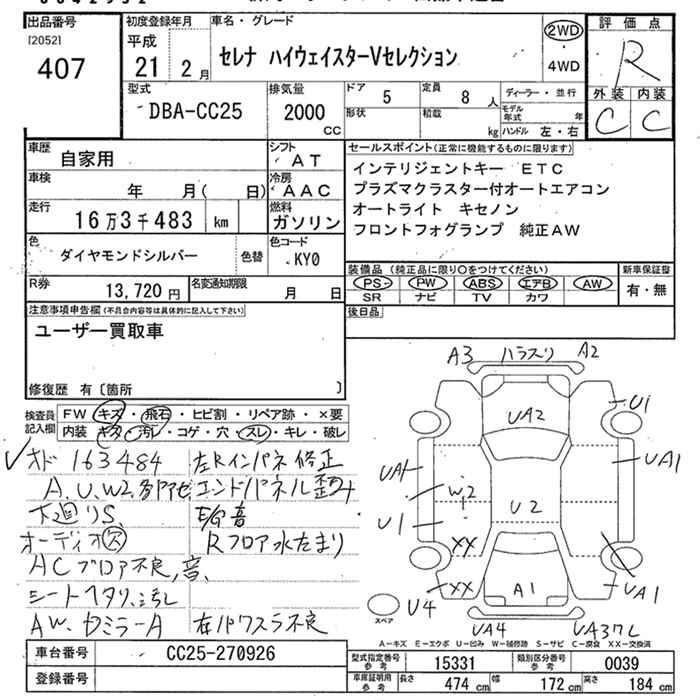 出品番号
[2052]
407
初度登録年月
平成
21年2月
車名・グレード
セレナ ハイウェイスターVセレクション
2WD
・
4WD
評価点
R
外装 内装
C C
型式
DBA-CC25
排気量
2000
CC
ドア
5
定員
8人
形状
積載
kg
ディーラー・並行
モデル年式 年
ハンドル 左・右
車歴
自家用
シフト
AT
車検
年 月( 日)
冷房
AAC
走行
16万3千483 km
燃料
ガソリン
色
ダイヤモンドシルバー
色替
色コード
KY0
R券
13,720円
名変通知期限
月 日
セールスポイント(正常に機能するものに限ります)
インテリジェントキー ETC
プラズマクラスター付オートエアコン
オートライト キセノン
フロントフォグランプ 純正AW
装備品(純正品に限り○をつけてください)
PS PW ABS エアB AW
SR ナビ TV カワ
新車保証書
有・無
後日品
注意事項申告欄(不具合内容等は具体的に記入して下さい)
ユーザー買取車
修復歴 有〔箇所 〕
検査員
記入欄
FW キズ・飛石・ヒビ割・リペア跡・×要
内装 キズ・汚レ・コゲ・穴・スレ・キレ・破レ
✓オド 163484
左Rインパネ修正
A.U.W2多部アセ
エンドパネル歪ミ
下廻りS
E/G音
オーディオ欠
Rフロア水たまり
ACブロア不良,音,
シートヘタリ,汚し
AW.Dミラー A
右パワスラ不良
A3 バラスリ A2
UA2
U1
UA1
UA1
W2
U2
U1
XX
XX
A1
UA1
U4
スペア
UA4
UA37L
A-キズ E-エクボ U-凹み W-補修跡 S-サビ C-腐食 XX-交換済
車台番号
CC25-270926
登録番号
型式指定番号
参考
15331
類別区分番号
参考
0039
車庫証明用
参考
長さ 474cm 幅 172cm 高さ 184cm